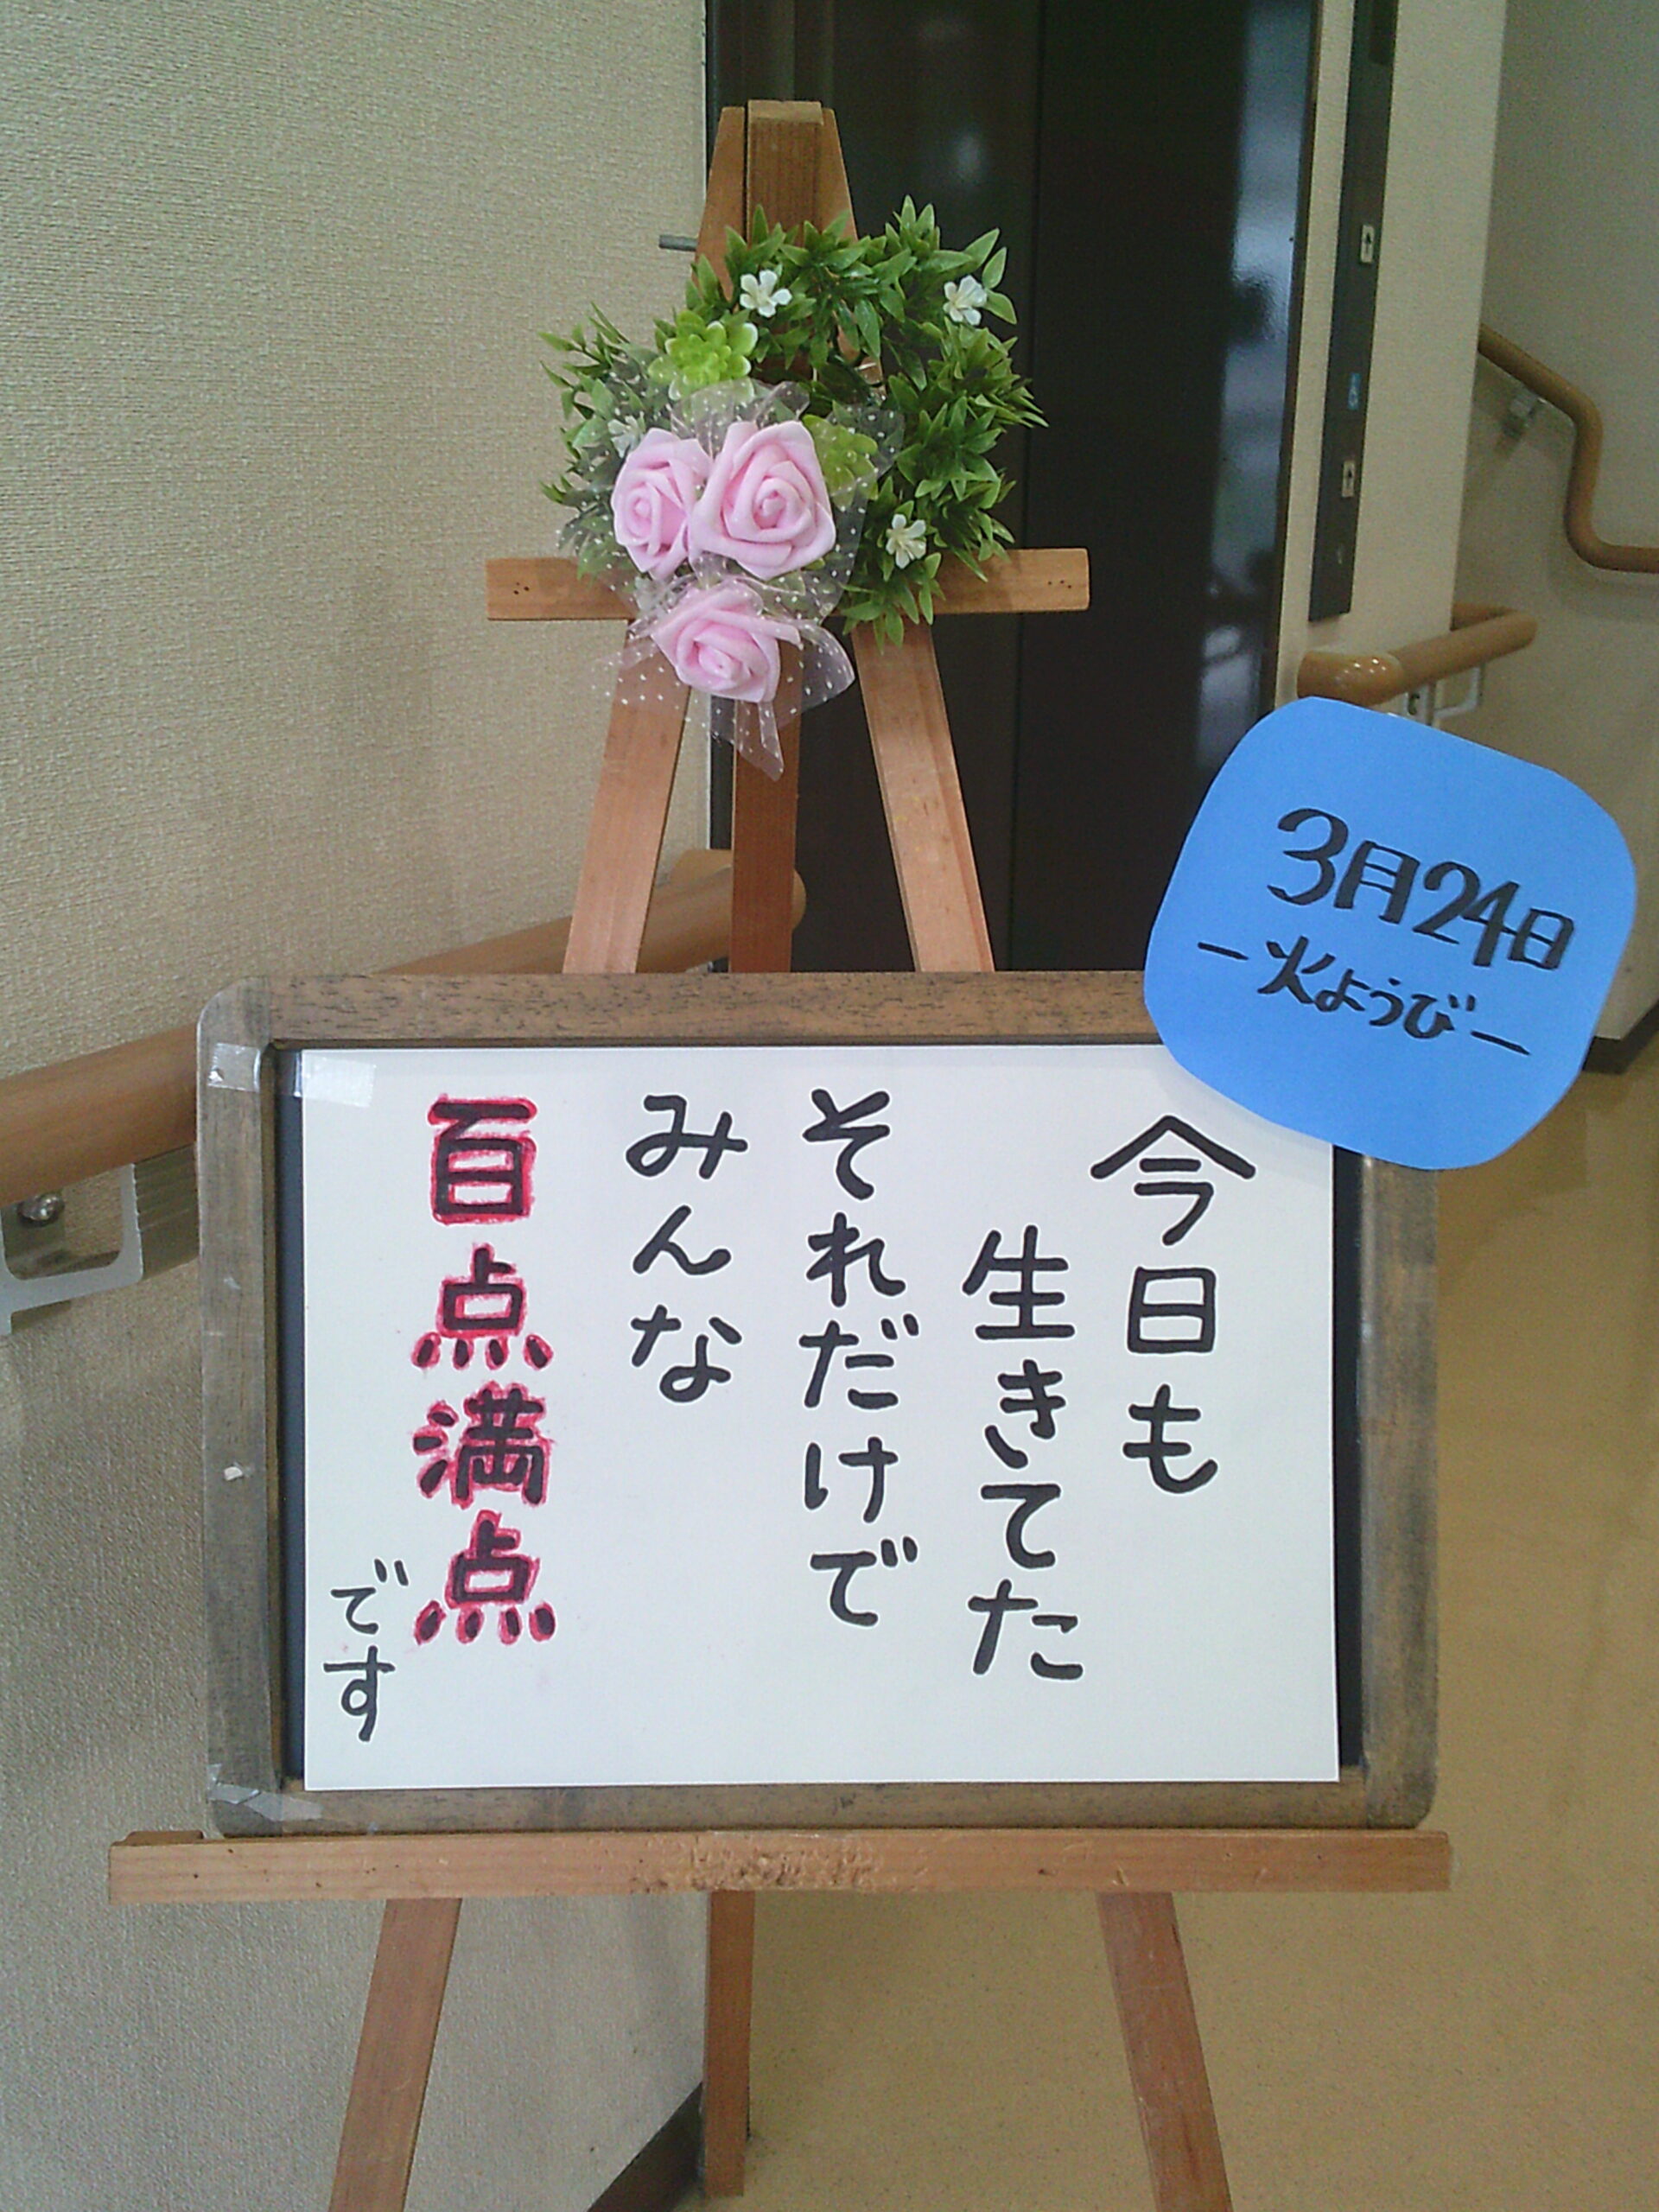 3月24日
-火ようび-
今日も
生きてた
それだけで
みんな
百点満点
です